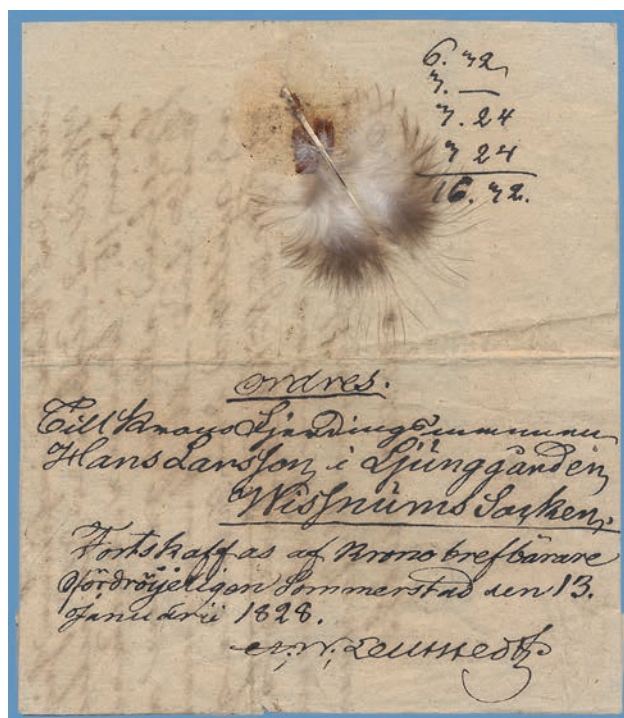 6. 32
3. —
3. 24
3 24
16. 32.
ordres.
Till Krono Fjerdingsmannen
Hans Larsson, i Ljunggården,
Wissnums Socken,
Fortskaffas af Kronobrefbärare
ofördröijeligen Sommerstad den 13.
Januarii 1828.